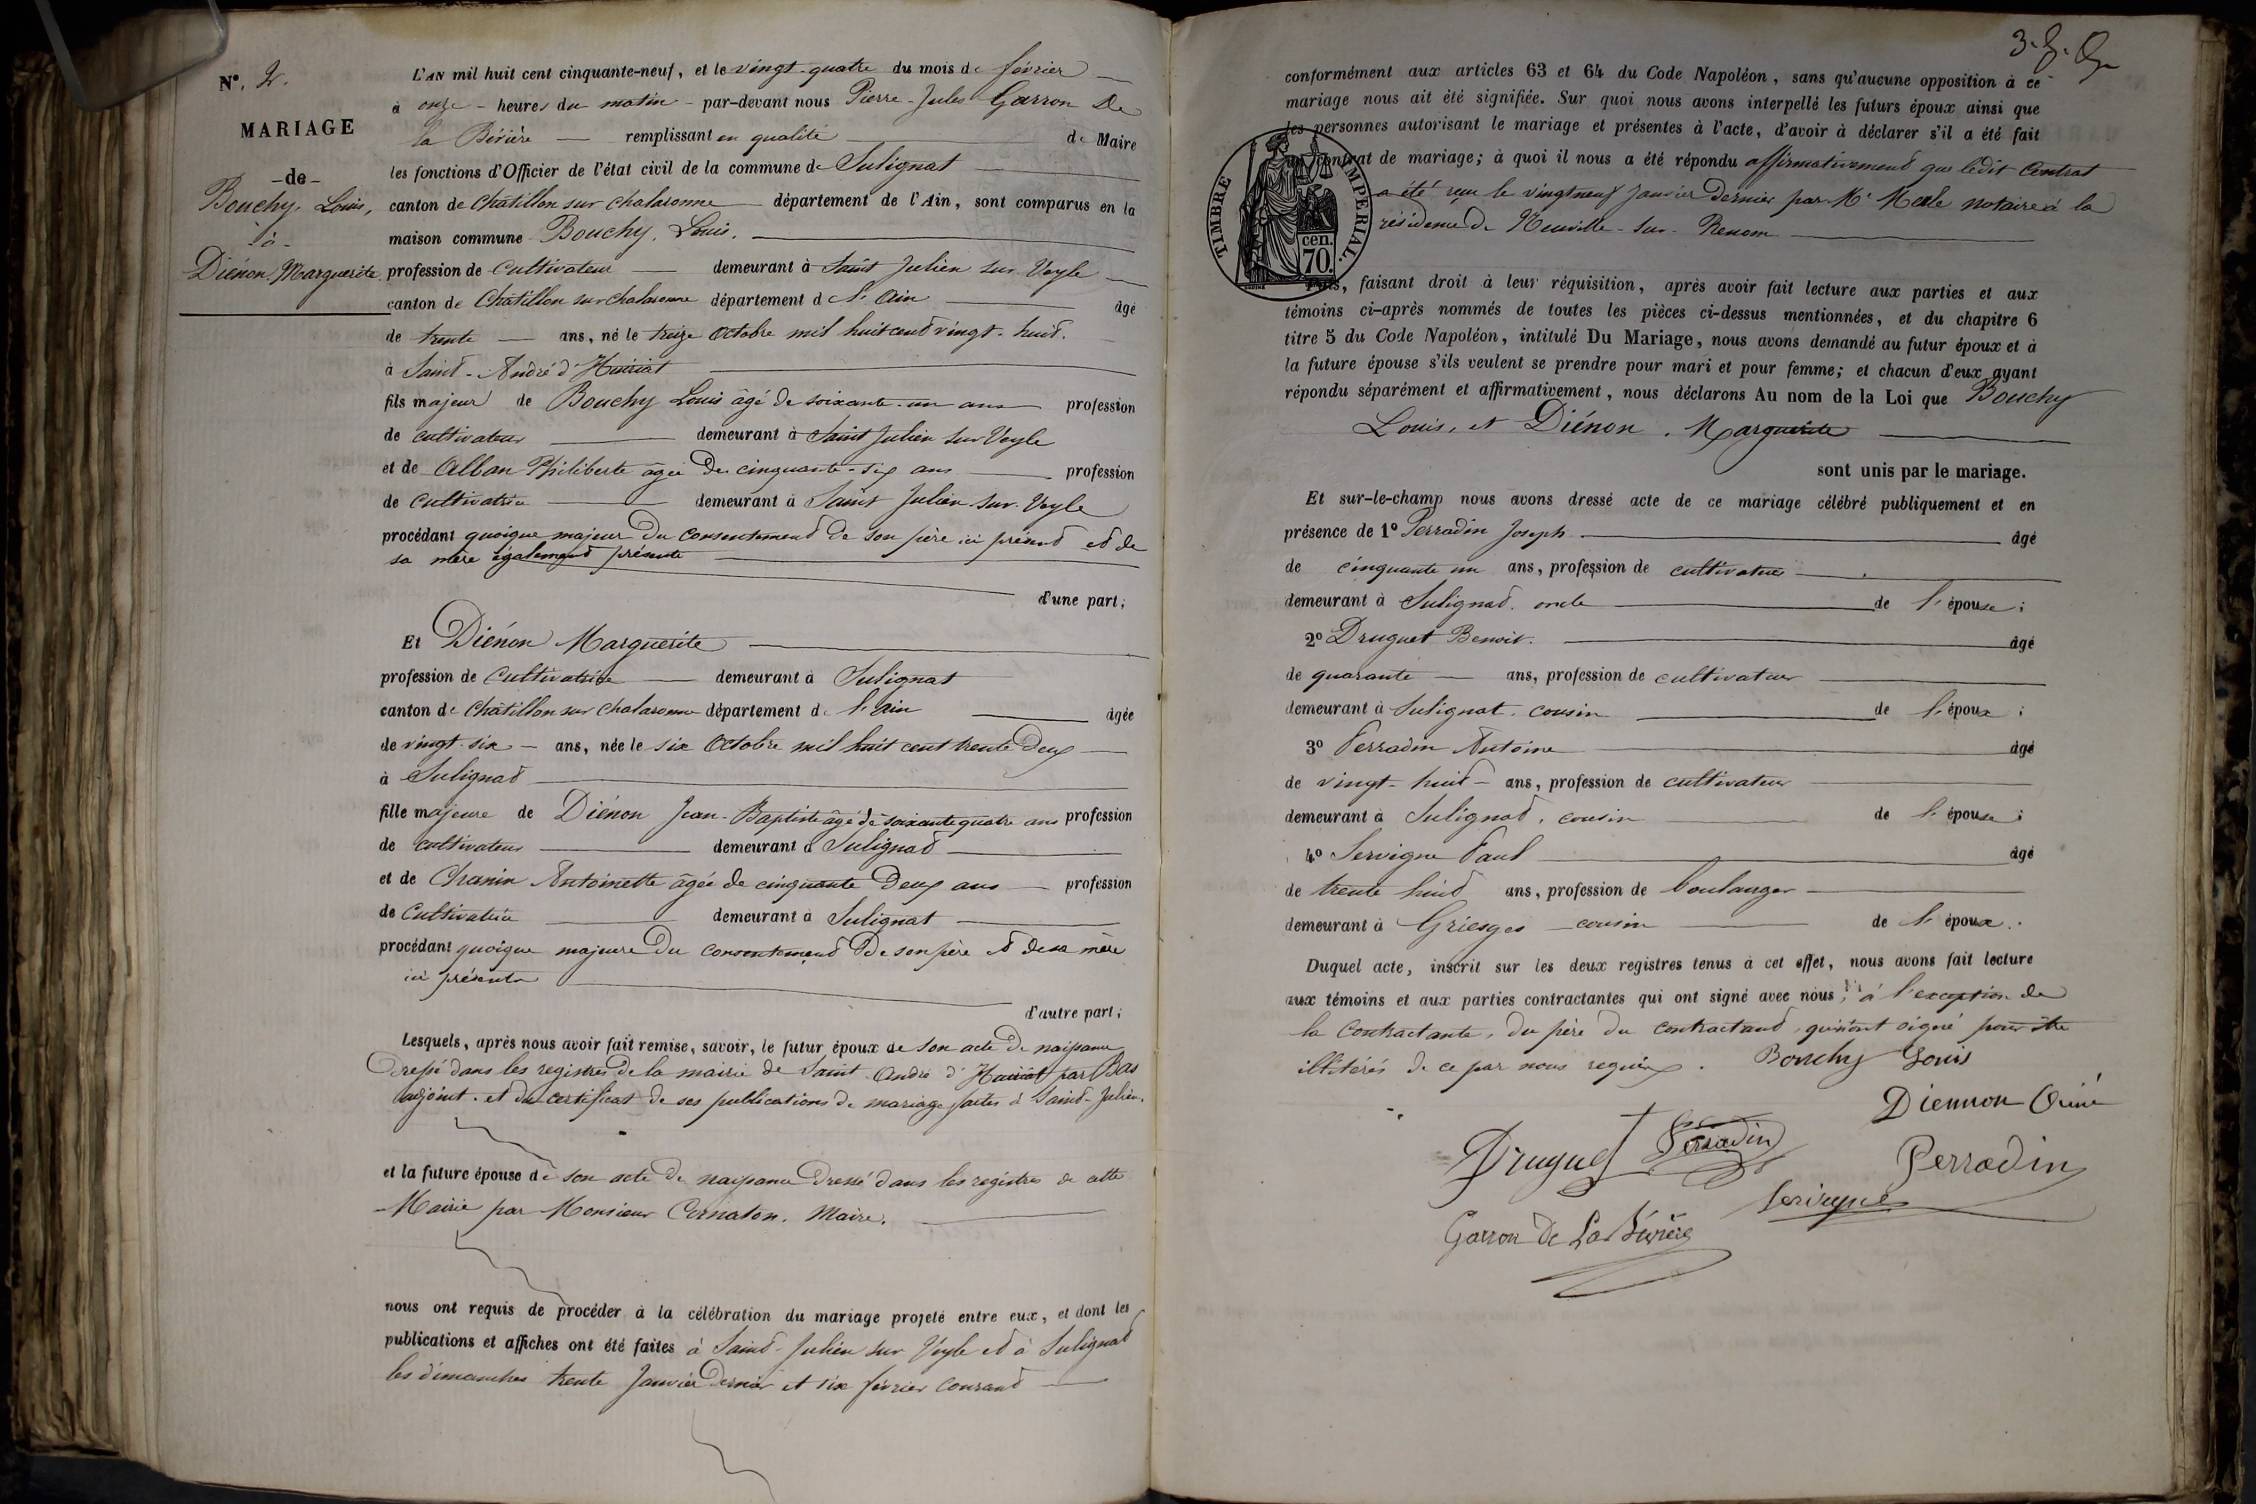 N°. 2.
MARIAGE
-de-
Bouchy, Louis,
-à-
Diénon, Marguerite.
L'AN mil huit cent cinquante-neuf, et le vingt-quatre du mois de février
à onze - heures du matin - par-devant nous Pierre-Jules Garron De
la Bévière remplissant en qualité de Maire
les fonctions d'Officier de l'état civil de la commune de Sulignat
canton de Châtillon sur Chalaronne département de l'Ain, sont comparus en la
maison commune Bouchy, Louis.
profession de cultivateur demeurant à Saint Julien sur Veyle
canton de Châtillon sur Chalaronne département de l'Ain âgé
de trente ans, né le treize Octobre mil huit cent vingt-huit.
à Saint-André d'Huiriat
fils majeur de Bouchy Louis âgé de soixante-un ans profession
de cultivateur demeurant à Saint Julien sur Veyle
et de Alban Philiberte âgée de cinquante-six ans profession
de cultivatrice demeurant à Saint Julien sur Veyle
procédant quoique majeur du consentement de son père ici présent et de
sa mère également présente
d'une part;
Et Diénon Marguerite
profession de cultivatrice demeurant à Sulignat
canton de Châtillon sur Chalaronne département de l'Ain âgée
de vingt-six - ans, née le six Octobre mil huit cent trente-deux
à Sulignat
fille majeure de Diénon Jean-Baptiste âgé de soixante quatre ans profession
de cultivateur demeurant à Sulignat
et de Chanin Antoinette âgée de cinquante Deux ans profession
de Cultivatrice demeurant à Sulignat
procédant quoique majeure du consentement de son père et de sa mère
ici présents
d'autre part;
Lesquels, après nous avoir fait remise, savoir, le futur époux de son acte de naissance
dressé dans les registres de la mairie de Saint André d'Huiriat par Bas
adjoint. et du certificat de ses publications de mariage faites à Saint-Julien.
et la future épouse de son acte de naissance dressé dans les registres de cette
Mairie par Monsieur Cernaton, Maire.
nous ont requis de procéder à la célébration du mariage projeté entre eux, et dont les
publications et affiches ont été faites à Saint-Julien sur Veyle et à Sulignat
les dimanches trente Janvier dernier et six février courant
conformément aux articles 63 et 64 du Code Napoléon, sans qu'aucune opposition à ce
mariage nous ait été signifiée. Sur quoi nous avons interpellé les futurs époux ainsi que
les personnes autorisant le mariage et présentes à l'acte, d'avoir à déclarer s'il a été fait
un contrat de mariage; à quoi il nous a été répondu affirmativement que ledit Contrat
a été reçu le vingt neuf Janvier dernier par Me Merle notaire à la
résidence de Neuville-sur-Renom
TIMBRE IMPERIAL.
cen.
70.
Puis, faisant droit à leur réquisition, après avoir fait lecture aux parties et aux
témoins ci-après nommés de toutes les pièces ci-dessus mentionnées, et du chapitre 6
titre 5 du Code Napoléon, intitulé Du Mariage, nous avons demandé au futur époux et à
la future épouse s'ils veulent se prendre pour mari et pour femme; et chacun d'eux ayant
répondu séparément et affirmativement, nous déclarons Au nom de la Loi que Bouchy
Louis, et Diénon, Marguerite
sont unis par le mariage.
Et sur-le-champ nous avons dressé acte de ce mariage célébré publiquement et en
présence de 1° Perradin Joseph âgé
de cinquante un ans, profession de cultivateur
demeurant à Sulignat. oncle de l'épouse;
2° Druguet Benoit. âgé
de quarante ans, profession de cultivateur
demeurant à Sulignat. cousin de l'époux;
3° Perradin Antoine âgé
de vingt-huit ans, profession de cultivateur
demeurant à Sulignat, cousin de l'épouse;
4° Servigne Paul âgé
de trente huit ans, profession de boulanger
demeurant à Grièges - cousin de l'époux.
Duquel acte, inscrit sur les deux registres tenus à cet effet, nous avons fait lecture
aux témoins et aux parties contractantes qui ont signé avec nous, à l'exception de
la Contractante, du père du contractant, qui n'ont signé pour être
illitérés de ce par nous requis. Bouchy Louis
Diennon
Druguet Perradin
Perradin
Servigne
Garron de La Bévière